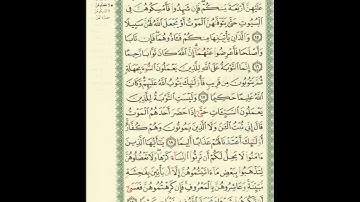 عَلَيْهِنَّ أَرْبَعَةً مِّنكُمْ فَإِن شَهِدُوا۟ فَأَمْسِكُوهُنَّ فِى
ٱلْبُيُوتِ حَتَّىٰ يَتَوَفَّىٰهُنَّ ٱلْمَوْتُ أَوْ يَجْعَلَ ٱللَّهُ لَهُنَّ سَبِيلًا
١٥ وَٱلَّذَانِ يَأْتِيَـٰنِهَا مِنكُمْ فَـَٔاذُوهُمَا فَإِن تَابَا
وَأَصْلَحَا فَأَعْرِضُوا۟ عَنْهُمَآ إِنَّ ٱللَّهَ كَانَ تَوَّابًا رَّحِيمًا
١٦ إِنَّمَا ٱلتَّوْبَةُ عَلَى ٱللَّهِ لِلَّذِينَ يَعْمَلُونَ ٱلسُّوٓءَ بِجَهَـٰلَةٍ
ثُمَّ يَتُوبُونَ مِن قَرِيبٍ فَأُو۟لَـٰٓئِكَ يَتُوبُ ٱللَّهُ عَلَيْهِمْ وَكَانَ
ٱللَّهُ عَلِيمًا حَكِيمًا ١٧ وَلَيْسَتِ ٱلتَّوْبَةُ لِلَّذِينَ
يَعْمَلُونَ ٱلسَّيِّـَٔاتِ حَتَّىٰٓ إِذَا حَضَرَ أَحَدَهُمُ ٱلْمَوْتُ
قَالَ إِنِّى تُبْتُ ٱلْـَٔـٰنَ وَلَا ٱلَّذِينَ يَمُوتُونَ وَهُمْ كُفَّارٌ
أُو۟لَـٰٓئِكَ أَعْتَدْنَا لَهُمْ عَذَابًا أَلِيمًا ١٨ يَـٰٓأَيُّهَا ٱلَّذِينَ
ءَامَنُوا۟ لَا يَحِلُّ لَكُمْ أَن تَرِثُوا۟ ٱلنِّسَآءَ كَرْهًا وَلَا تَعْضُلُوهُنَّ
لِتَذْهَبُوا۟ بِبَعْضِ مَآ ءَاتَيْتُمُوهُنَّ إِلَّآ أَن يَأْتِينَ بِفَـٰحِشَةٍ
مُّبَيِّنَةٍ وَعَاشِرُوهُنَّ بِٱلْمَعْرُوفِ فَإِن كَرِهْتُمُوهُنَّ فَعَسَىٰٓ